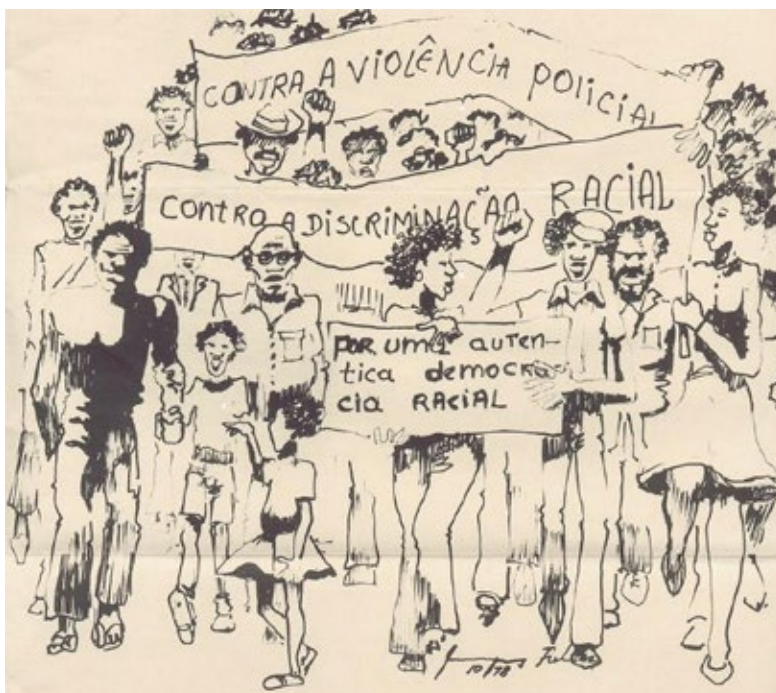 CONTRA A VIOLÊNCIA POLICIAL
CONTRO A DISCRIMINAÇÃO RACIAL
POR UMA AUTEN-
tica democra
cia RACIAL
10/78